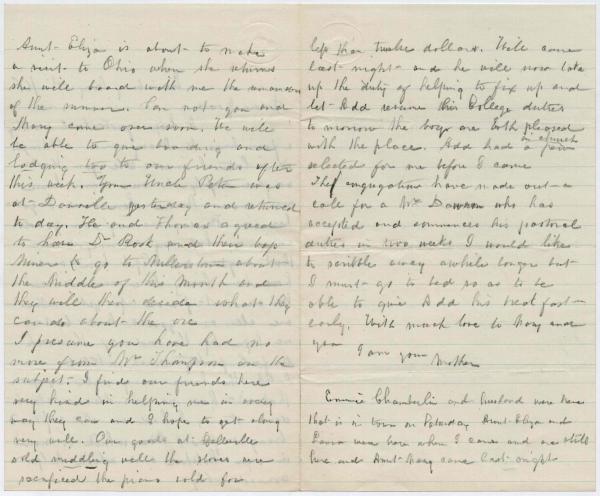 Aunt Eliza is about to make
a visit to Ohio when she returns
she will board with me the remainder
of the summer. Can not you and
Mary come over soon. We will
be able to give boarding and
lodging too to our friends after
this week. Your Uncle Pete was
at Danville yesterday and returned
to day. He and Thomas agreed
to have Dr Rook and their boys
Miner & go to Millerstown about
the Middle of this Month and
they will then decide what they
can do about the ore
I presume you have had no
more from Mr Thompson on the
subject. I find our friends here
very kind in helping me in every
way they can and I hope to get along
very well. Our goods at Bellville
sold middling well the stoves were
sacrificed the piano sold for
less than twelve dollars. Will came
last night and he will now take
up the duty of helping to fix up and
let Add resume his College duties
to morrow the boys are both pleased
with the place. Add had a pew in church
selected for me before I came
The Congregation have made out a
call for a Mr Dawson who has
accepted and commences his pastoral
duties in two weeks I would like
to scribble away awhile longer but
I must go to bed so as to be
able to give Add his breakfast
early. With much love to Mary and
you
I am your
Mother
Emmie Chamberlin and husband were here
that is in town on Saturday Aunt Eliza and
were here when I came and are still
here and Aunt Mary came last night